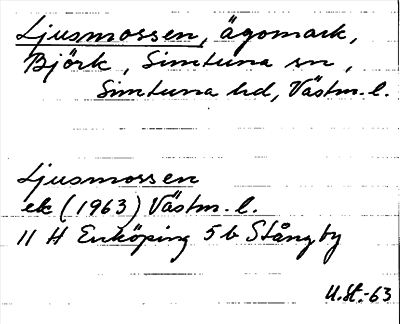 Ljusmossen, ägomark,
Björk, Simtuna sn,
Simtuna hd, Västm. l.
Ljusmossen
ek (1963) Västm. l.
11 H Enköping 5 b Stångby
U.St.-63